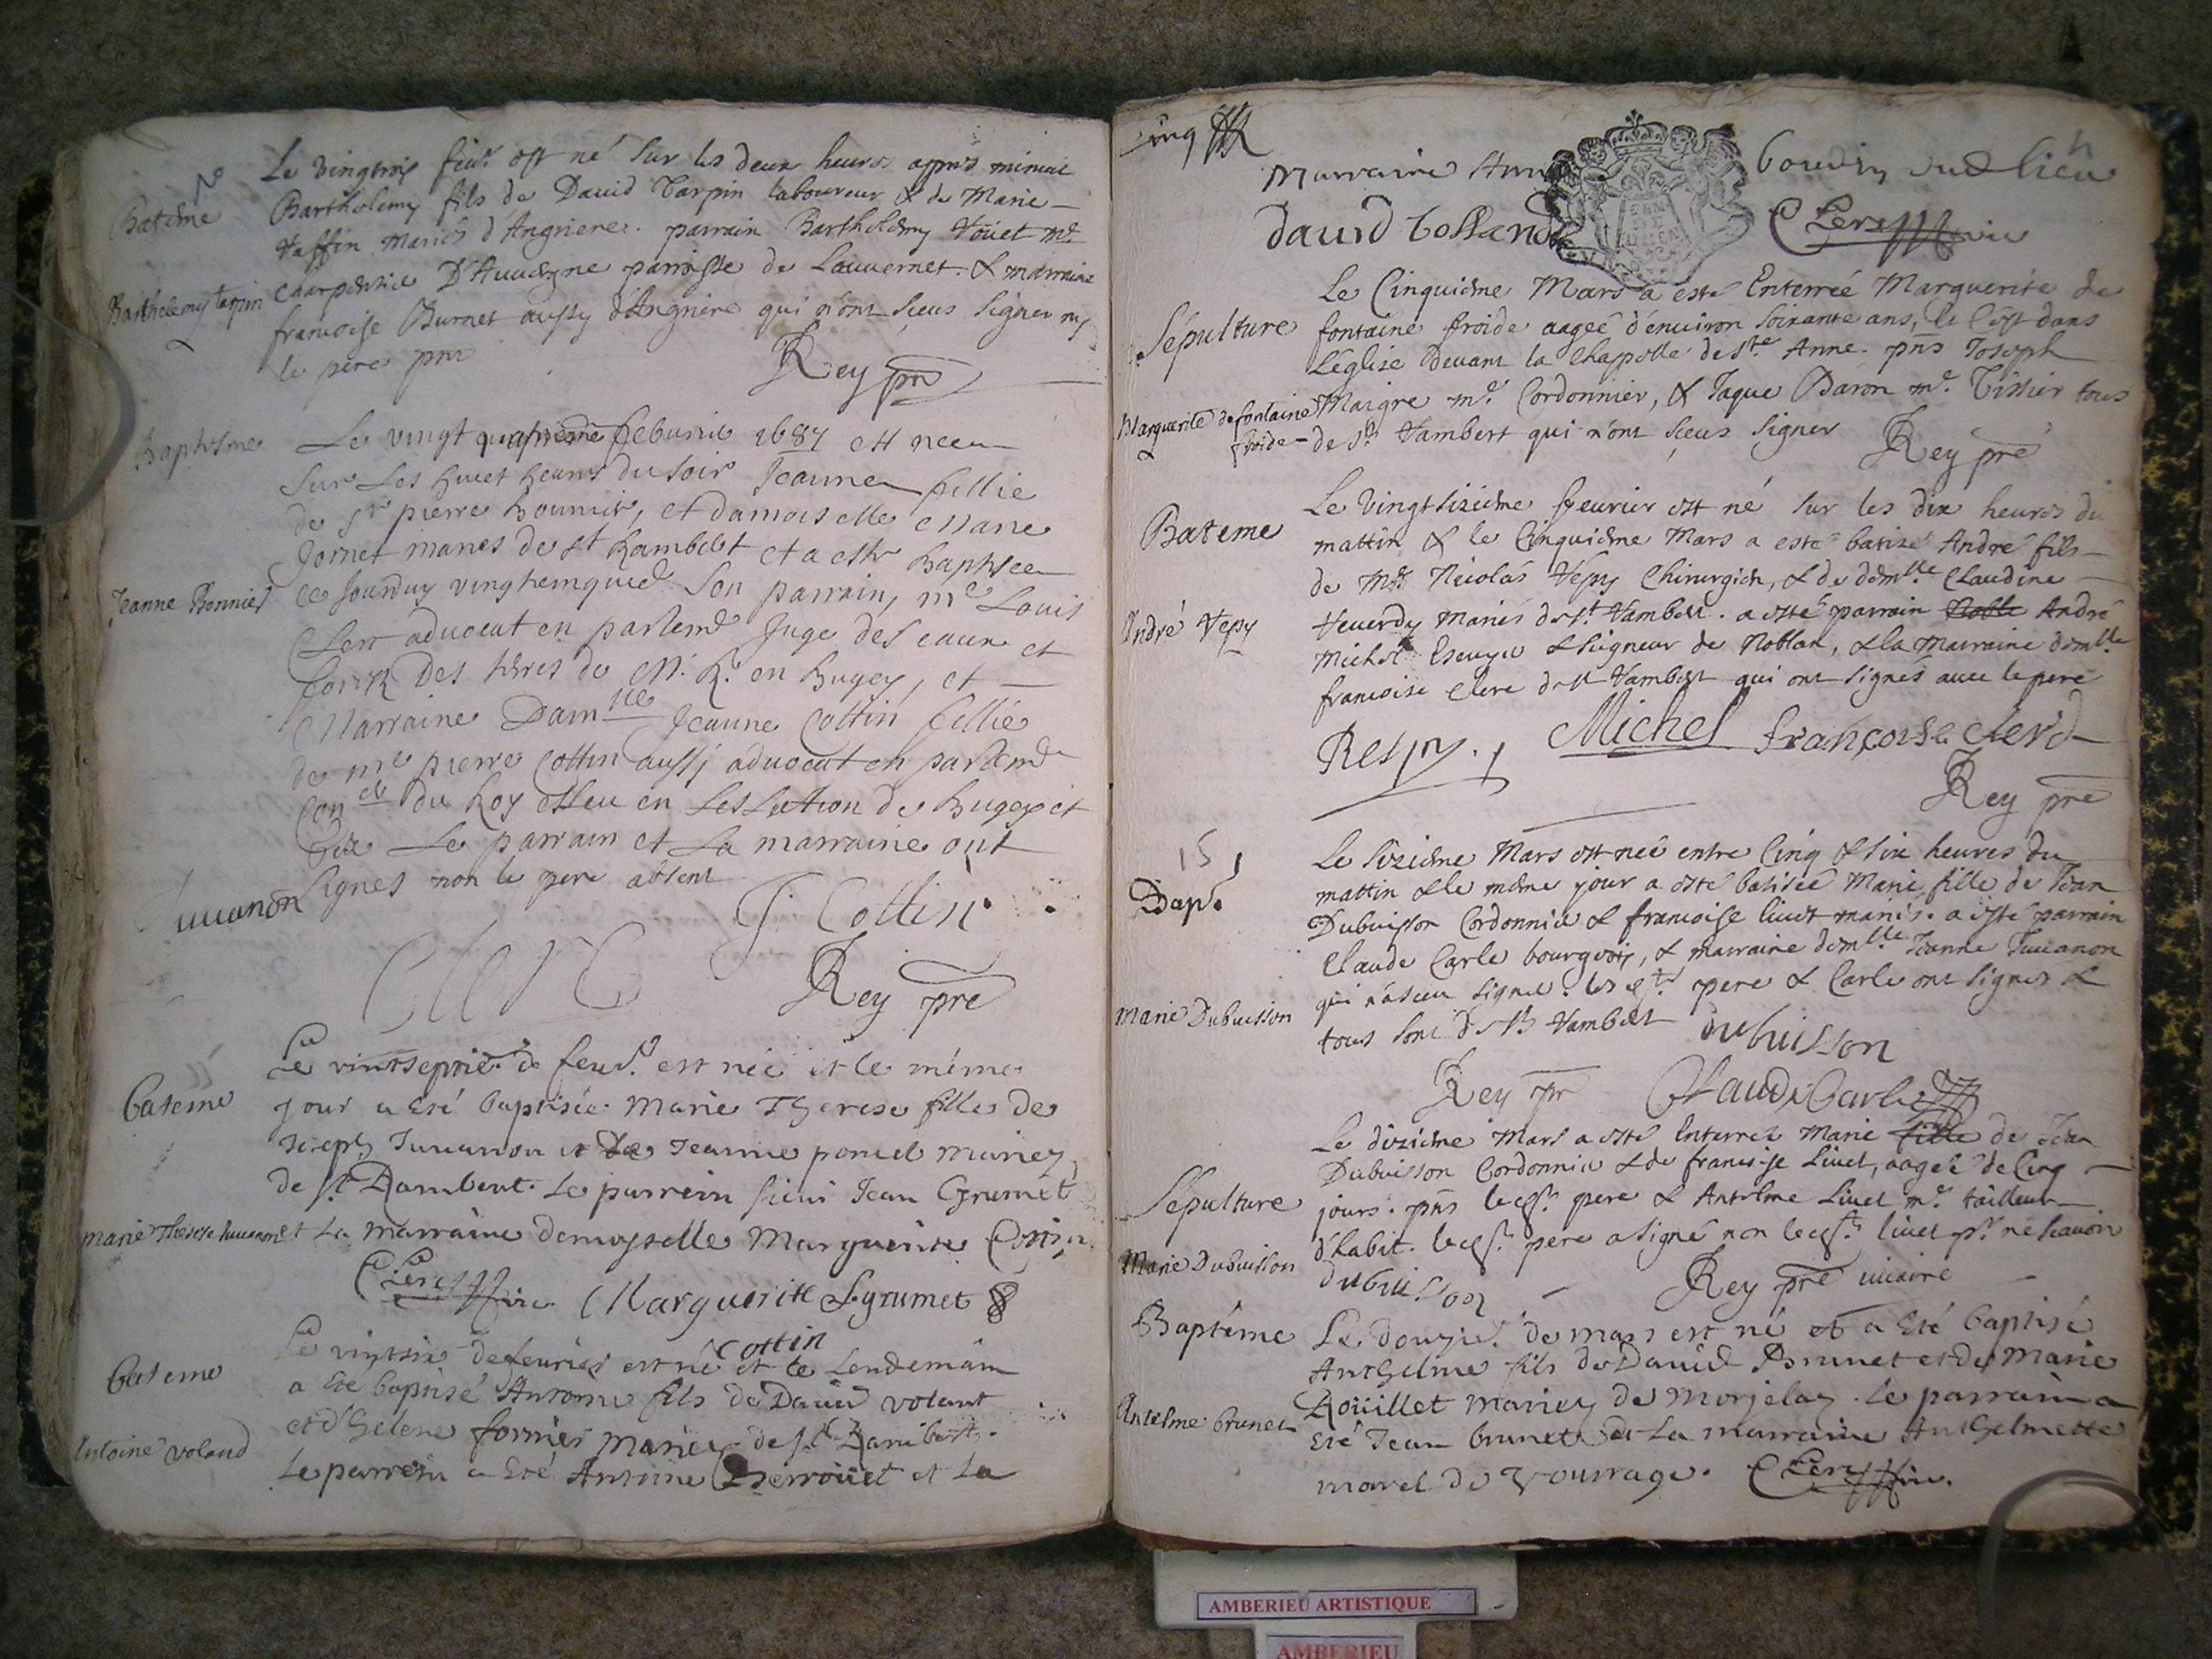 Le vingtrois feur. est né sur les deux heures apprés minuit
Bateme
Bartholemy fils de David Tarpin laboureur & de Marie
Vaffin mariés d'Angriere. parrain Bartholemy Vouet me.
Barthelemy tarpin
Charpentier D'Auuergne parroisse de Lauuernet. & marraine
francoise Burnet aussy d'Angriere qui n'ont sceus signer ny
le pere pnt
Rey pre
Baptisme
Le vingt quatrieme feburier 1687 est neeu
sur les huict heures du soir Jeanne fillie
de Sr pierre Bounier, et damoiselle Marie
Jornet mariés de St Rambert et a esté baptisee
Jeanne Bonnier
ce jourduy vingt cinquie. son parrain, me Louis
Clerc aduocat en parlemt Juge des eaux et
des tères de en bugey, et
Marraine Damlle Jeanne Cottin fillie
de me pierre Cottin aussj aduocat en parlemt
Conelr du Roy esleu en Lesleation de bugey et
Le parrain et La marraine ont
signes non le pere absent
Juuanon
J. Cottin
Clerc
Rey pre
Le vintseptie. de feur. est née et le même
bateme
jour a eté baptisée Marie Therese fille de
Joseph Juuanon et de Jeanne poncet mariez
de St Rambert. Le parrein sieur Jean Grumet
marie Therese Juuanon
et La marraine demoyselle Marguerite Cottin
Clerc vic. Marguerite Sgrumet
cottin
Le vintsix de feurier est né et le Lendemain
bateme
a eté baptisé Antoine fils de David volant
et d'Helene fornier mariez de St Rambert.
Antoine voland
Le parrein a eté Antoine Cherrouet et La
Cinq
Marraine Anne bouvin dud lieu
david bolland Clerc vic
Le Cinquieme Mars a esté Enterrée Marguerite de
Sépulture
fontaine froide aagee d'enuiron soixante ans, & c'est dans
L'église Devant la Chappelle de Ste Anne. pns Joseph
Marguerite de fontaine
Maigre me. Cordonnier, & Jaque Baron me. Tissier tous
froide
de St Rambert qui n'ont sceus signer Rey pre
Le vingt sizieme feurier est né sur les dix heures du
Bateme
mattin & le Cinquieme Mars a esté batisé André fils
de Mre Nicolas Vepy Chirurgien, & de demlle Claudine
André Vepy
Veuerdy mariés de St Rambert. a esté parrain Noble André
Michel Escuyer & seigneur de Noblan, & la marraine demlle
francoise clerc de St Rambert qui ont signés auec le pere
Michel françoise clerc
Rey pre
15
Le sizieme Mars est neé entre Cinq & six heures du
Bap.
mattin & le meme jour a esté batisée Marie fille de Jean
Dubuisson Cordonnier & francoise liuet mariés. a esté parrain
Claude Carle bourgeois, & marraine demlle Jeanne Juuanon
qui n'a sceu signer. les pere & Carle ont signes &
Marie Dubuisson
tous sont de St Rambert dubuisson
Rey pr Claude Carle
Le dizieme Mars a esté Enterreé Marie fille de Jean
Dubuisson Cordonnier & de francoise Liuet, aagée de Cinq
Sépulture
jours. pns pere & Antelme Liuet me. tailleur
d'habit. pere a signé non liuet pr. ne scauoir
Marie Dubuisson
dubuisson Rey pre vicaire
Baptême
Le douzie. de mars est né et a eté baptisé
Anthelme fils de David Brunet et de Marie
Rouillet mariez de Morjelaz. le parrain a
Antelme Brunet
eté Jean brunet et La marraine Anthelmette
morel de vourrage. Clerc vic.
AMBERIEU ARTISTIQUE
AMBERIEU